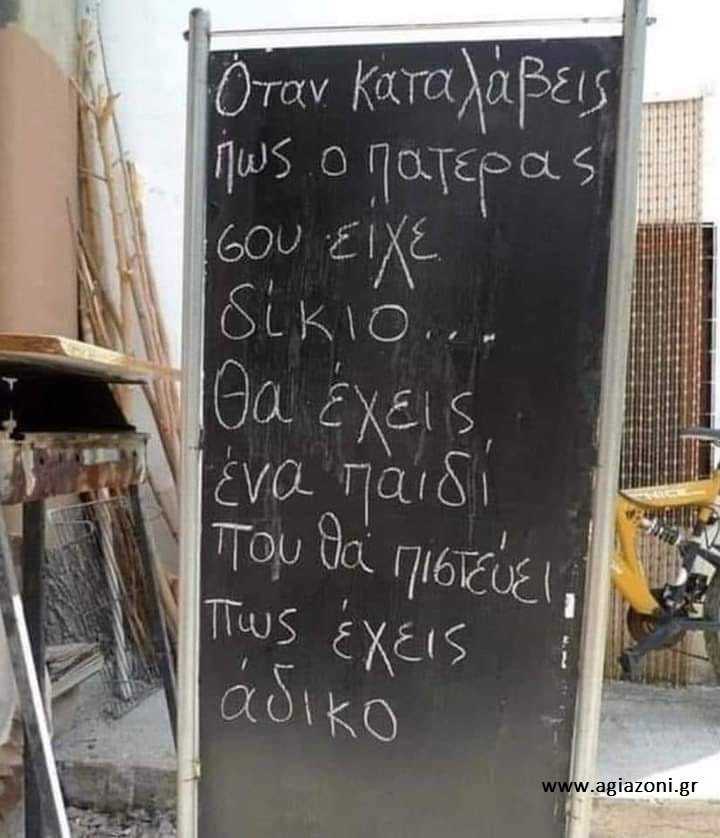 Όταν καταλάβεις
πως ο πατερας
σου είχε
δίκιο...
Θα έχεις
ένα παιδί
που θα πιστεύει
πως έχεις
άδικο
NICE
www.agiazoni.gr